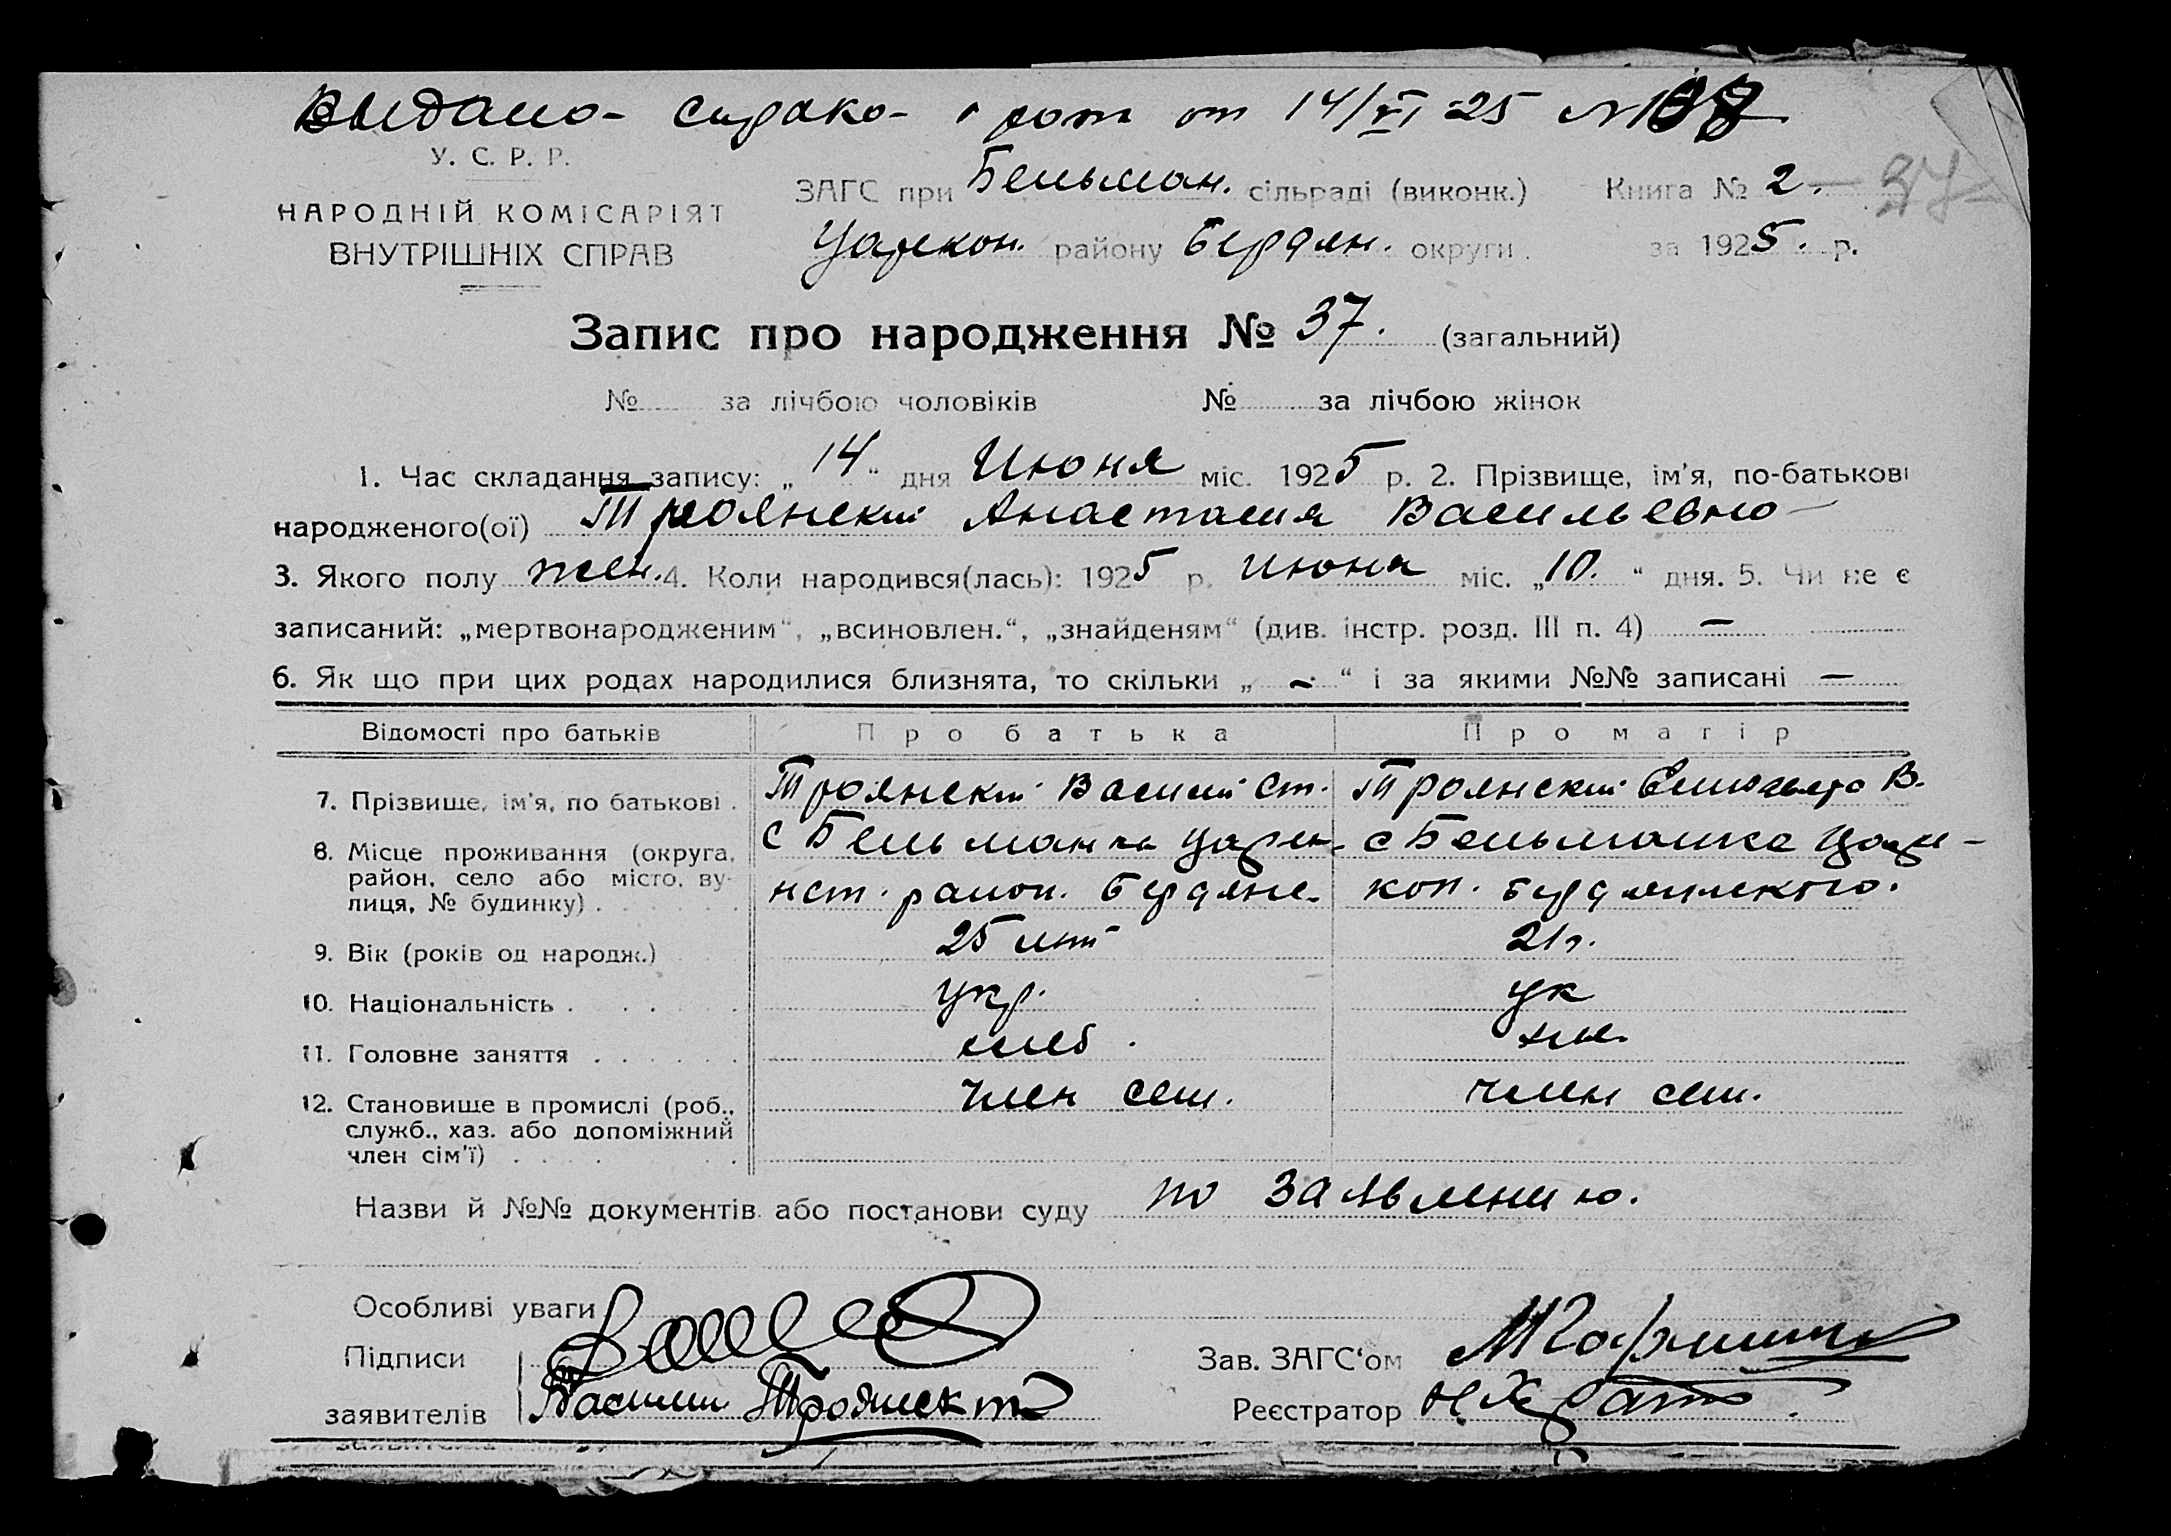 Выдано от 14/VI 25 №
У. С. Р. Р.
НАРОДНІЙ КОМІСАРІЯТ
ВНУТРІШНІХ СПРАВ
ЗАГС при Бельман. сільраді (виконк.) Книга № 2. 37
Царекон. району Бердян. округи. за 1925. р.
Запис про народження № 37. (загальний)
№ за лічбою чоловіків № за лічбою жінок
1. Час складання запису: „14“ дня Июня міс. 1925 р. 2. Прізвище, ім'я, по-батькові
народженого(ої) Троянский Анастасия Васильевно
3. Якого полу жен. 4. Коли народився(лась): 1925 р. Июня міс. „10.“ дня. 5. Чи не є
записаний: „мертвонародженим“, „всиновлен.“, „знайденям“ (див. інстр. розд. III п. 4) —
6. Як що при цих родах народилися близнята, то скільки „ – “ і за якими №№ записані —
Відомості про батьків Про батька Про матір
7. Прізвище, ім'я, по батькові . Троянский Василий Ст. Троянский Елизавета В.
8. Місце проживання (округа, район, село або місто, вулиця, № будинку) . с Бельманка Царек- нст. район. Бердянс. с Бельманка Царе- кон. Бердянского.
9. Вік (років од народж.) 25 лет 21 г.
10. Національність . укр. ук
11. Головне заняття . хлеб.
12. Становище в промислі (роб., служб., хаз. або допоміжний член сім'ї) . член сем. член сем.
Назви й №№ документів або постанови суду по заявлению.
Особливі уваги
Підписи
заявителів Василий Троянский
Зав. ЗАГС'ом
Реєстратор